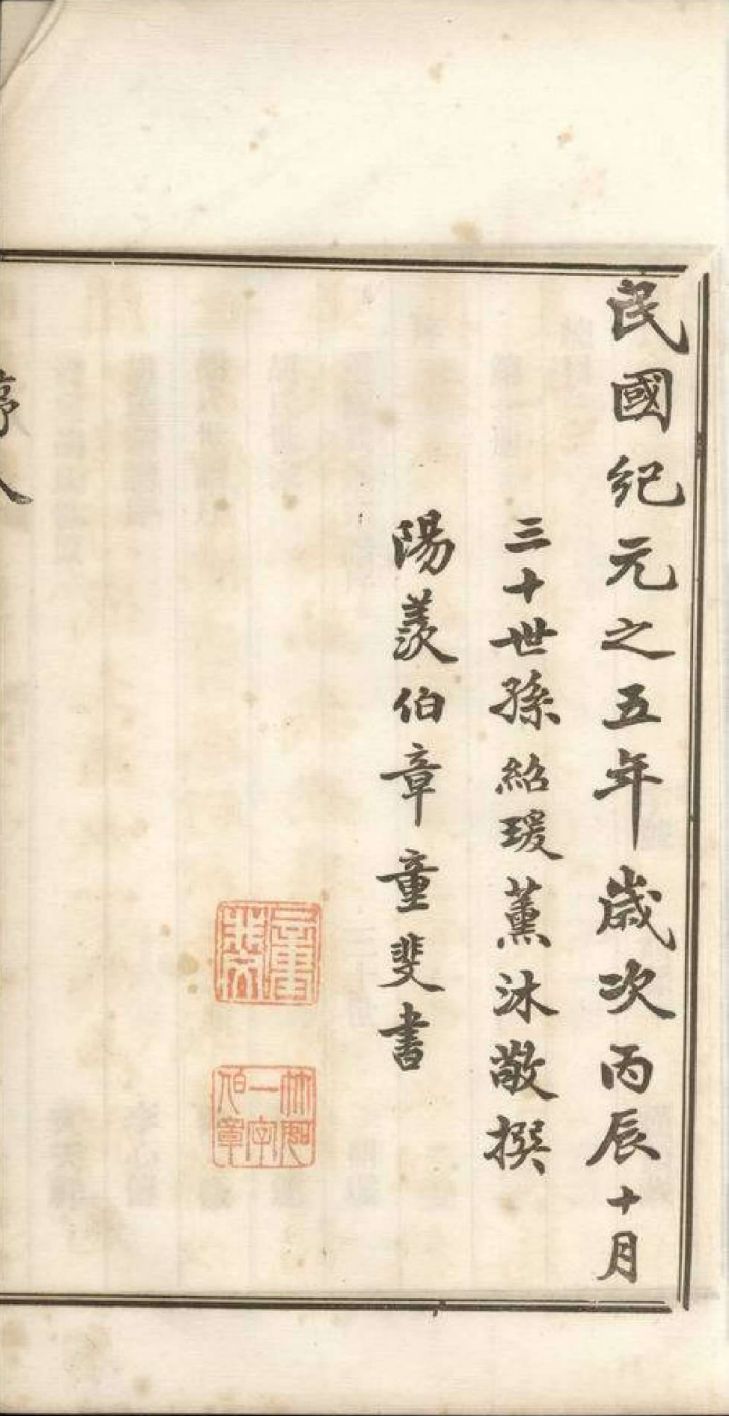 民國紀元之五年歲次丙辰十月
三十世孫紹瑗薰沐敬撰
陽羨伯章童斐書
童斐
一字伯章